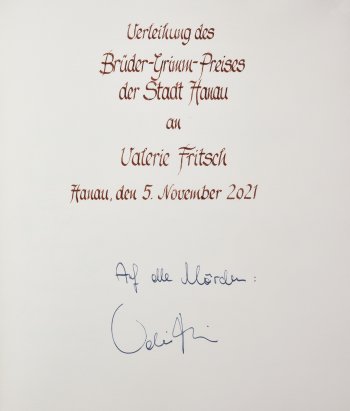 Verleihung des
Brüder-Grimm-Preises
der Stadt Hanau
an
Valerie Fritsch
Hanau, den 5. November 2021
Auf alle :